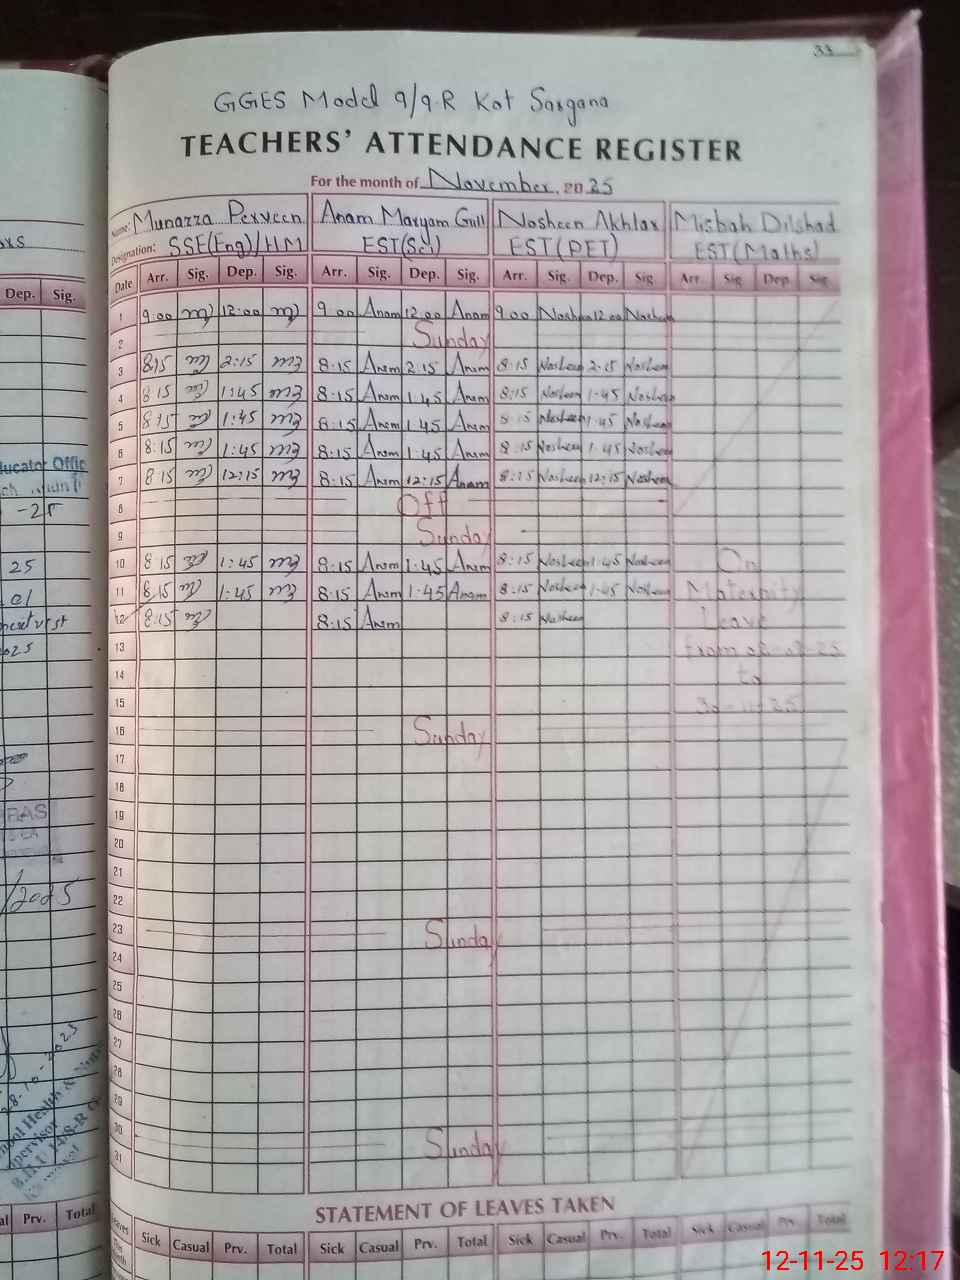 33
GGES Model 9/9-R Kot Sargana
TEACHERS' ATTENDANCE REGISTER
For the month of November, 2025
Name: Munazza Perveen Anam Maryam Gull Nosheen Akhlax Misbah Dilshad
Designation: SSE(Eng)/HM EST(Sci) EST(PET) EST(Maths)
Date Arr. Sig. Dep. Sig. Arr. Sig. Dep. Sig. Arr. Sig. Dep. Sig. Arr. Sig. Dep. Sig.
1 9:00 12:00 9 00 Anam 12 00 Anam 9:00 Nosheen 12:00 Nosheen
2 Sunday
3 8:15 2:15 8:15 Anam 2:15 Anam 8:15 Nosheen 2:15 Nosheen
4 8 15 1:45 8:15 Anam 1:45 Anam 8:15 Nosheen 1:45 Nosheen
5 8:15 1:45 8:15 Anam 1:45 Anam 8:15 Nosheen 1:45 Nosheen
6 8:15 1:45 8:15 Anam 1:45 Anam 8:15 Nosheen 1:45 Nosheen
7 8:15 12:15 8:15 Anam 12:15 Anam 8:15 Nosheen 12:15 Nosheen
8 Off
9 Sunday
10 8 15 1:45 8:15 Anam 1:45 Anam 8:15 Nosheen 1:45 Nosheen On
11 8:15 1:45 8:15 Anam 1:45 Anam 8:15 Nosheen 1:45 Nosheen Maternity
12 8:15 8:15 Anam 8:15 Nosheen Leave
13 from
14 to
15 30-11-25
16 Sunday
17
18
19
20
21
22
23 Sunday
24
25
26
27
28
29
30 Sunday
31
STATEMENT OF LEAVES TAKEN
Leaves This Month Sick Casual Prv. Total Sick Casual Prv. Total Sick Casual Prv. Total Sick Casual Prv. Total
Dep. Sig.
-25
25
Prv. Total
12-11-25 12:17